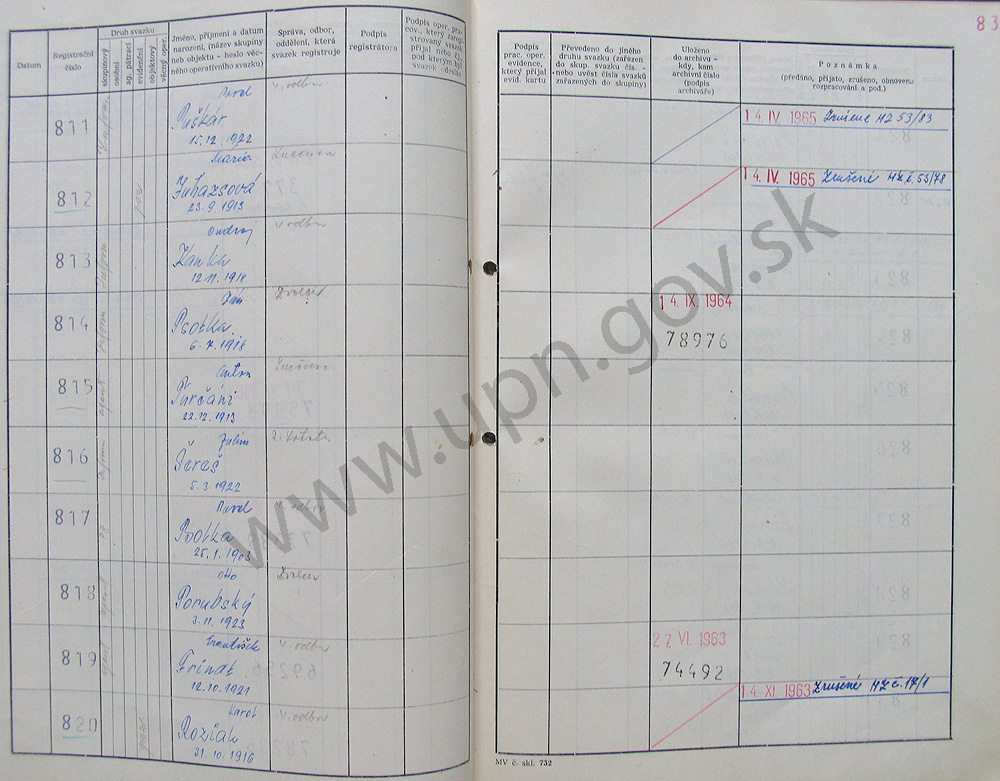 83
Datum
Registrační číslo
Druh svazku
skupinový
osobní
ag. pátrací
evidenční
objektový
věcný oper.
Jméno, příjmení a datum
narození, (název skupiny
neb objektu - heslo věc-
ného operativního svazku)
Správa, odbor,
oddělení, která
svazek registruje
Podpis
registrátora
Podpis oper. pra-
cov., který zareg-
strovaný svazek
Podpis
prac. oper.
evidence,
který přijal
evid. kartu
Převedeno do jiného
druhu svazku (zařazen
do skup. svazku čís. -
-nebo uvést čísla svazků
zařazených do skupiny)
Uloženo
do archivu -
kdy, kam
archivní číslo
(podpis
archiváře)
Poznámka
(předáno, přijato, zrušeno, obnoveno
rozpracování a pod.)
811
Pavel
Puškár
15.12.1922
4. odbor
14. IV. 1965 Zrušené HZ 53/83
812
Mária
Juhazsová
23.9.1913
Lučenec
14. IV. 1965 Zrušené HZ č. 53/78
813
Ondrej
Hanka
12.11.1918
4 odbor
814
Ján
Psotka
6.7.1918
Zvolen
14. IX. 1964
78976
815
agent
Anton
Purčáni
22.12.1913
Lučenec
816
Július
Jéreš
5.3.1922
817
Pavel
Psotka
25.1.1903
818
Otto
Porubský
3.11.1923
Zvolen
819
František
Frindt
12.10.1921
4. odbor
22 VI. 1963
74492
820
Karol
Roziak
31.10.1916
4. odbor
14. XI. 1963 Zrušené HZ č. 17/1
MV č. skl. 732
www.upn.gov.sk